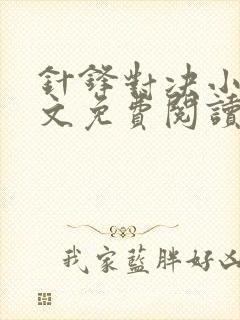 針鋒對決小
文免費閱讀
我家藍胖好凶